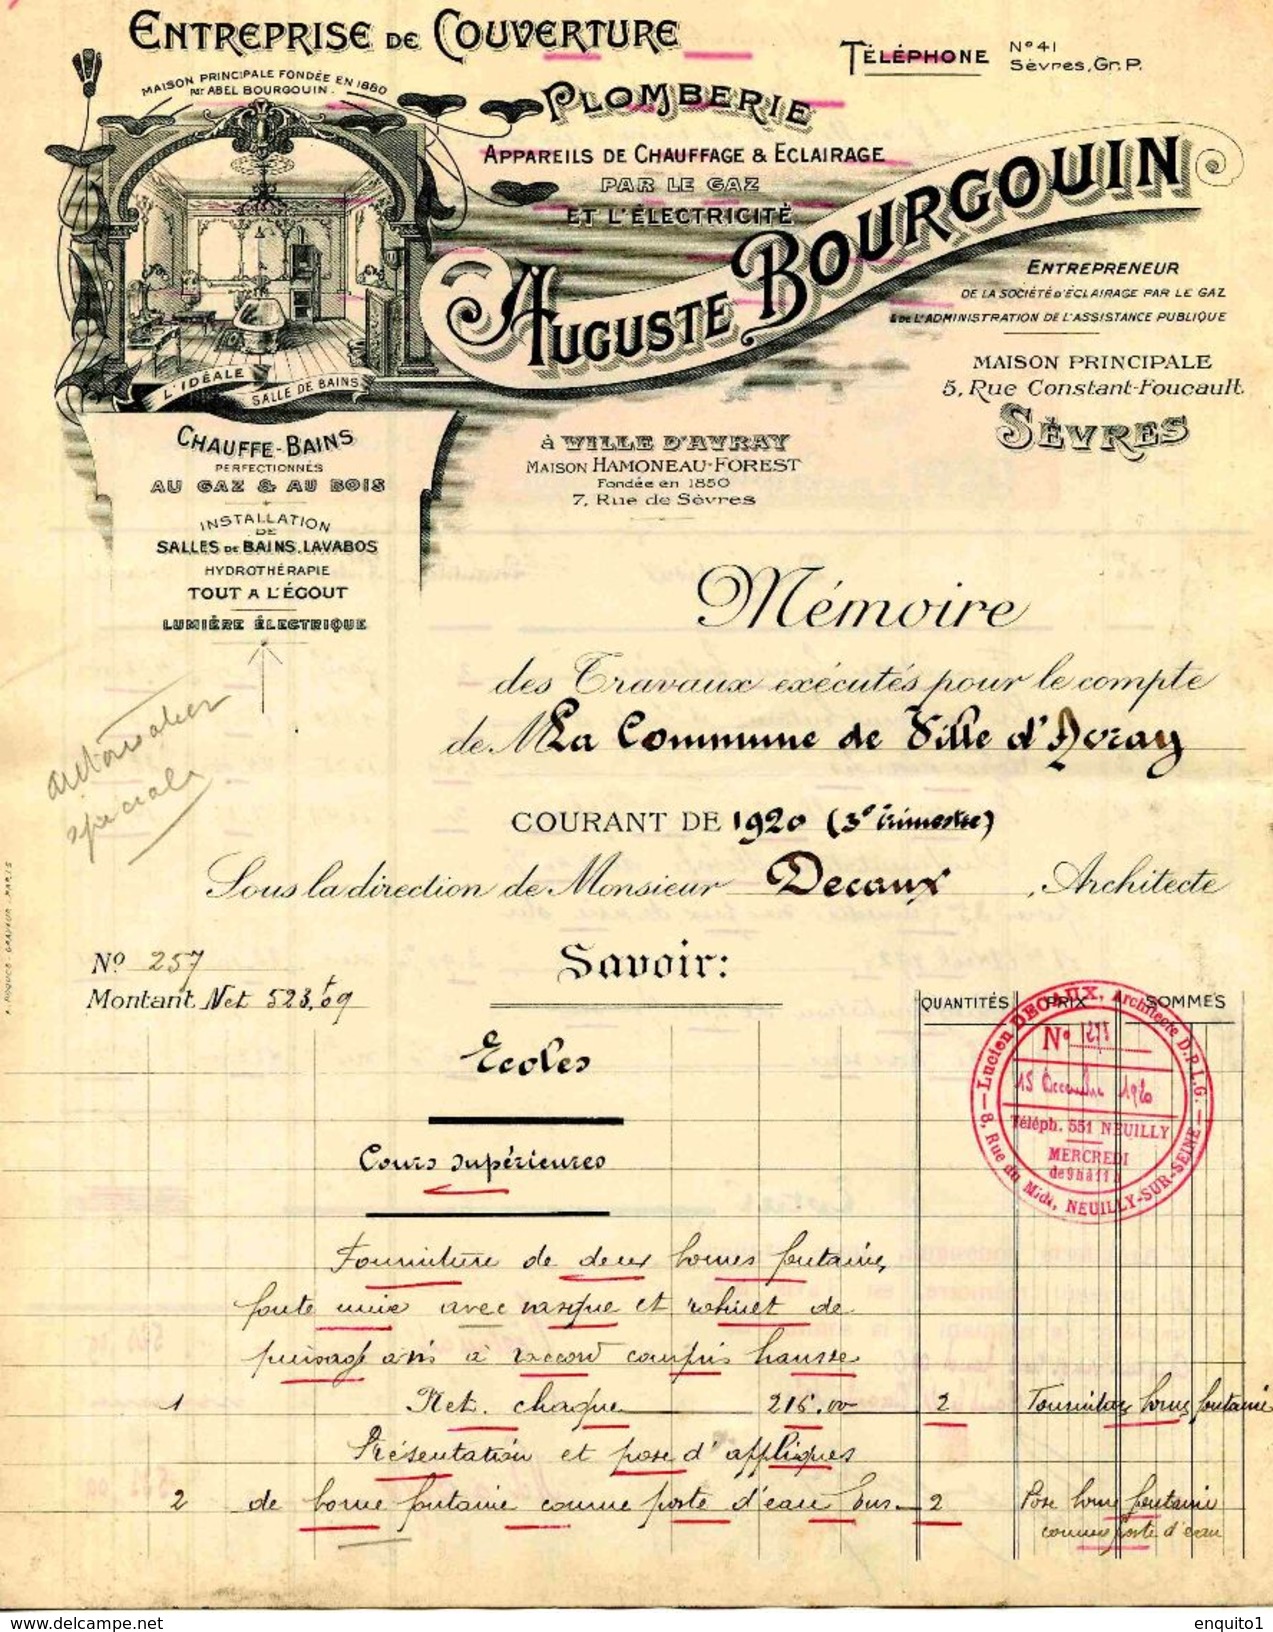 ENTREPRISE DE COUVERTURE
TÉLÉPHONE N° 41
Sèvres, Gr. P.
MAISON PRINCIPALE FONDÉE EN 1880
PAR ABEL BOURGOUIN.
PLOMBERIE
APPAREILS DE CHAUFFAGE & ECLAIRAGE
PAR LE GAZ
ET L'ÉLECTRICITÉ
AUGUSTE BOURGOUIN
ENTREPRENEUR
DE LA SOCIÉTÉ D'ÉCLAIRAGE PAR LE GAZ
& DE L'ADMINISTRATION DE L'ASSISTANCE PUBLIQUE
MAISON PRINCIPALE
5, Rue Constant-Foucault.
SÈVRES
L'IDÉALE
SALLE DE BAINS
CHAUFFE-BAINS
PERFECTIONNÉS
AU GAZ & AU BOIS
INSTALLATION
DE
SALLES DE BAINS, LAVABOS
HYDROTHÉRAPIE
TOUT A L'ÉGOUT
LUMIÈRE ÉLECTRIQUE
à VILLE D'AVRAY
MAISON HAMONEAU-FOREST
Fondée en 1850
7, Rue de Sèvres
Mémoire
des Travaux exécutés pour le compte
de M La Commune de Ville d'Avray
COURANT DE 1920 (3e trimestre)
Sous la direction de Monsieur Decaux, Architecte
autorisation
spéciale
N° 257
Montant Net 523,f09
Savoir:
QUANTITÉS PRIX SOMMES
Lucien DECAUX, Architecte D.P.L.G.
8, Rue du Midi, NEUILLY-SUR-SEINE
N° 1273
15 Décembre 1920
Téléph. 551 NEUILLY
MERCREDI
de 9h à 11h
Ecoles
Cours supérieures
Fourniture de deux bornes fontaine,
fonte unie avec vasque et robinet de
puisage avis à raccord compris hausse
1 Net. chaque 216.00 2 Fourniture borne fontaine
Présentation et pose d'appliques
2 de borne fontaine comme poste d'eau sur. 2 Pose borne fontaine
comme poste d'eau
www.delcampe.net
enquito1